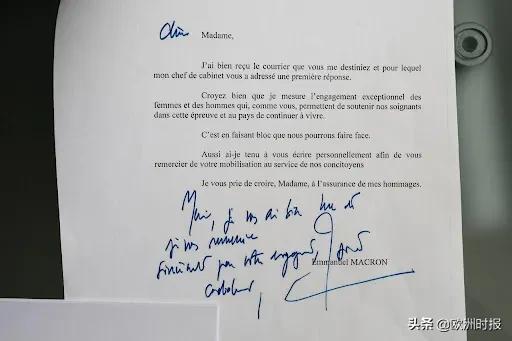 Chère Madame,
J'ai bien reçu le courrier que vous me destiniez et pour lequel
mon chef de cabinet vous a adressé une première réponse.
Croyez bien que je mesure l'engagement exceptionnel des
femmes et des hommes qui, comme vous, permettent de soutenir nos soignants
dans cette épreuve et au pays de continuer à vivre.
C'est en faisant bloc que nous pourrons faire face.
Aussi ai-je tenu à vous écrire personnellement afin de vous
remercier de votre mobilisation au service de nos concitoyens
Je vous prie de croire, Madame, à l'assurance de mes hommages.
je vous ai bien lue et
je vous remercie
sincèrement pour votre engagement,
Emmanuel MACRON
头条 @欧洲时报